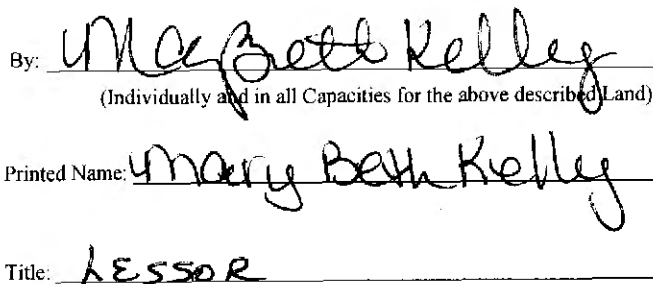 By: Mary Beth Kelley
(Individually and in all Capacities for the above described Land)
Printed Name: Mary Beth Kelly
Title: LESSOR